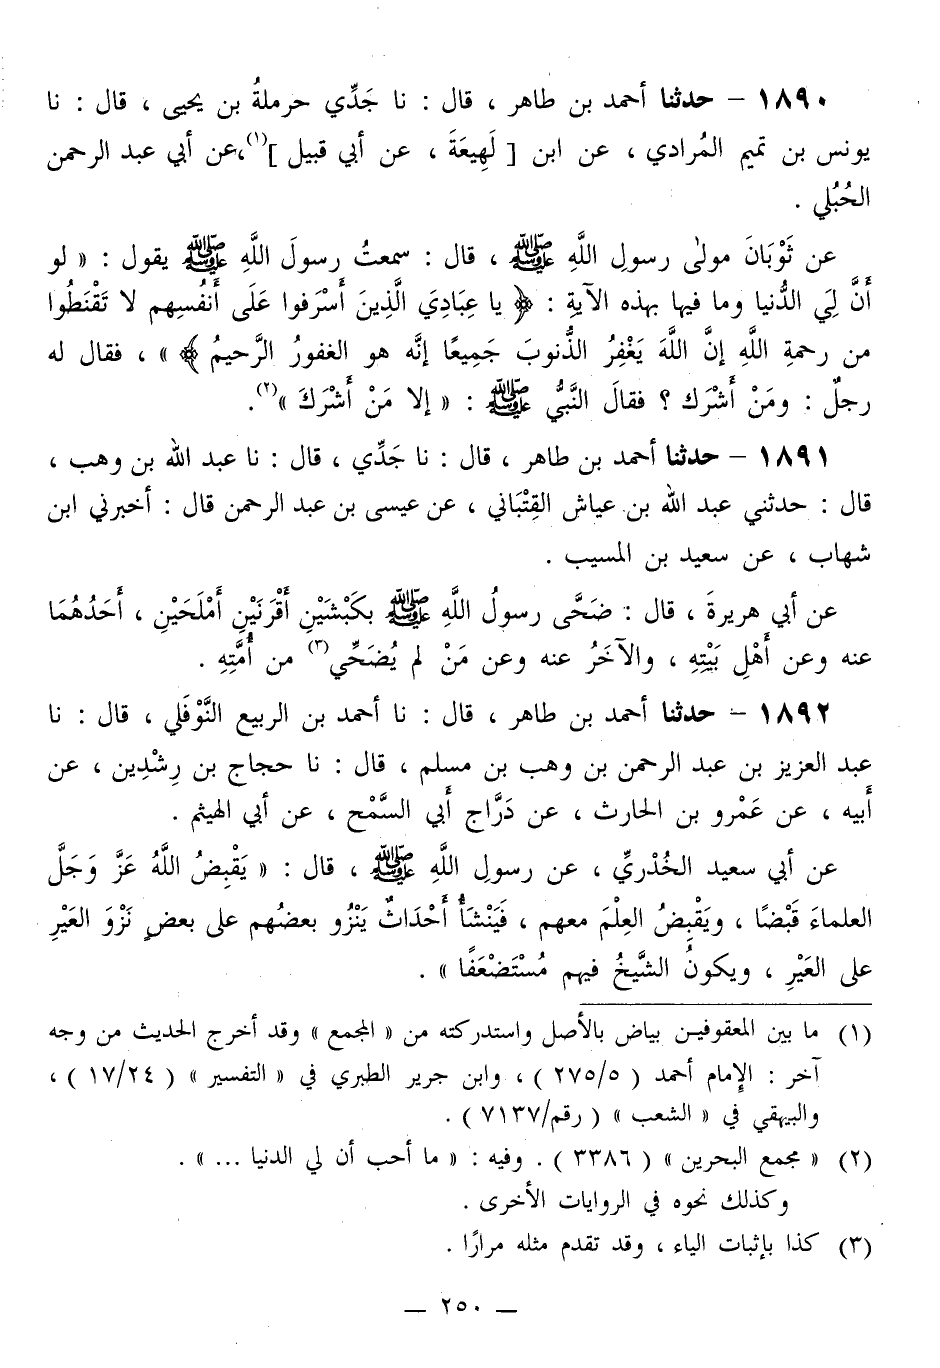 ١٨٩٠ – حدثنا أحمد بن طاهر ، قال : نا جَدِّي حرملةُ بن يحيى ، قال : نا
يونس بن تميم المُرادي ، عن ابن [ لَهِيعَةَ ، عن أبي قبيل ](١)،عن أبي عبد الرحمن
الحُبُلي .
عن ثَوْبَانَ مولىٰ رسولِ اللَّهِ ﷺ ، قال : سمعتُ رسولَ اللَّهِ ﷺ يقول : « لو
أَنَّ لِيَ الدُّنيا وما فيها بهذه الآيةِ : ﴿ يا عِبَادِيَ الَّذِينَ أَسْرَفوا عَلَى أَنفُسِهم لا تَقْنَطُوا
من رحمةِ اللَّهِ إنَّ اللَّهَ يَغْفِرُ الذُّنوبَ جَمِيعًا إنَّه هو الغفورُ الرَّحيمُ ﴾ » ، فقال له
رجلٌ : ومَنْ أَشْرَك ؟ فقالَ النَّبيُّ ﷺ : « إلا مَنْ أَشْرَكَ »(٢).
١٨٩١ – حدثنا أحمد بن طاهر ، قال : نا جَدِّي ، قال : نا عبد الله بن وهب ،
قال : حدثني عبد الله بن عياش القِتْبَاني ، عن عيسى بن عبد الرحمن قال : أخبرني ابن
شهاب ، عن سعيد بن المسيب .
عن أبي هريرةَ ، قال : ضَحَّى رسولُ اللَّهِ ﷺ بكَبْشَيْنِ أَقْرَنَيْنِ أَمْلَحَيْنِ ، أَحَدُهُمَا
عنه وعن أَهْلِ بَيْتِهِ ، والآخَرُ عنه وعن مَنْ لم يُضَحِّي(٣) من أُمَّتِهِ .
١٨٩٢ – حدثنا أحمد بن طاهر ، قال : نا أحمد بن الربيع النَّوْفَلي ، قال : نا
عبد العزيز بن عبد الرحمن بن وهب بن مسلم ، قال : نا حجاج بن رِشْدِين ، عن
أَبيه ، عن عَمْرو بن الحارث ، عن دَرَّاج أَبي السَّمْح ، عن أبي الهيثم .
عن أبي سعيد الخُدْريِّ ، عن رسولِ اللَّهِ ﷺ ، قال : « يَقْبِضُ اللَّهُ عَزَّ وَجَلَّ
العلماءَ قَبْضًا ، ويَقْبِضُ العِلْمَ معهم ، فَيَنْشَأُ أَحْدَاثٌ يَنْزُو بعضُهم على بعضٍ نَزْوَ العَيْرِ
على العَيْرِ ، ويكونُ الشَّيخُ فيهم مُسْتَضْعَفًا » .
(١) ما بين المعقوفين بياض بالأصل واستدركته من « المجمع » وقد أخرج الحديث من وجه
آخر : الإمام أحمد ( ٢٧٥/٥ ) ، وابن جرير الطبري في « التفسير » ( ١٧/٢٤ ) ،
والبيهقي في « الشعب » ( رقم/٧١٣٧ ) .
(٢) « مجمع البحرين » ( ٣٣٨٦ ) . وفيه : « ما أحب أن لي الدنيا ... » .
وكذلك نحوه في الروايات الأخرى .
(٣) كذا بإثبات الياء ، وقد تقدم مثله مرارًا .
— ٢٥٠ —